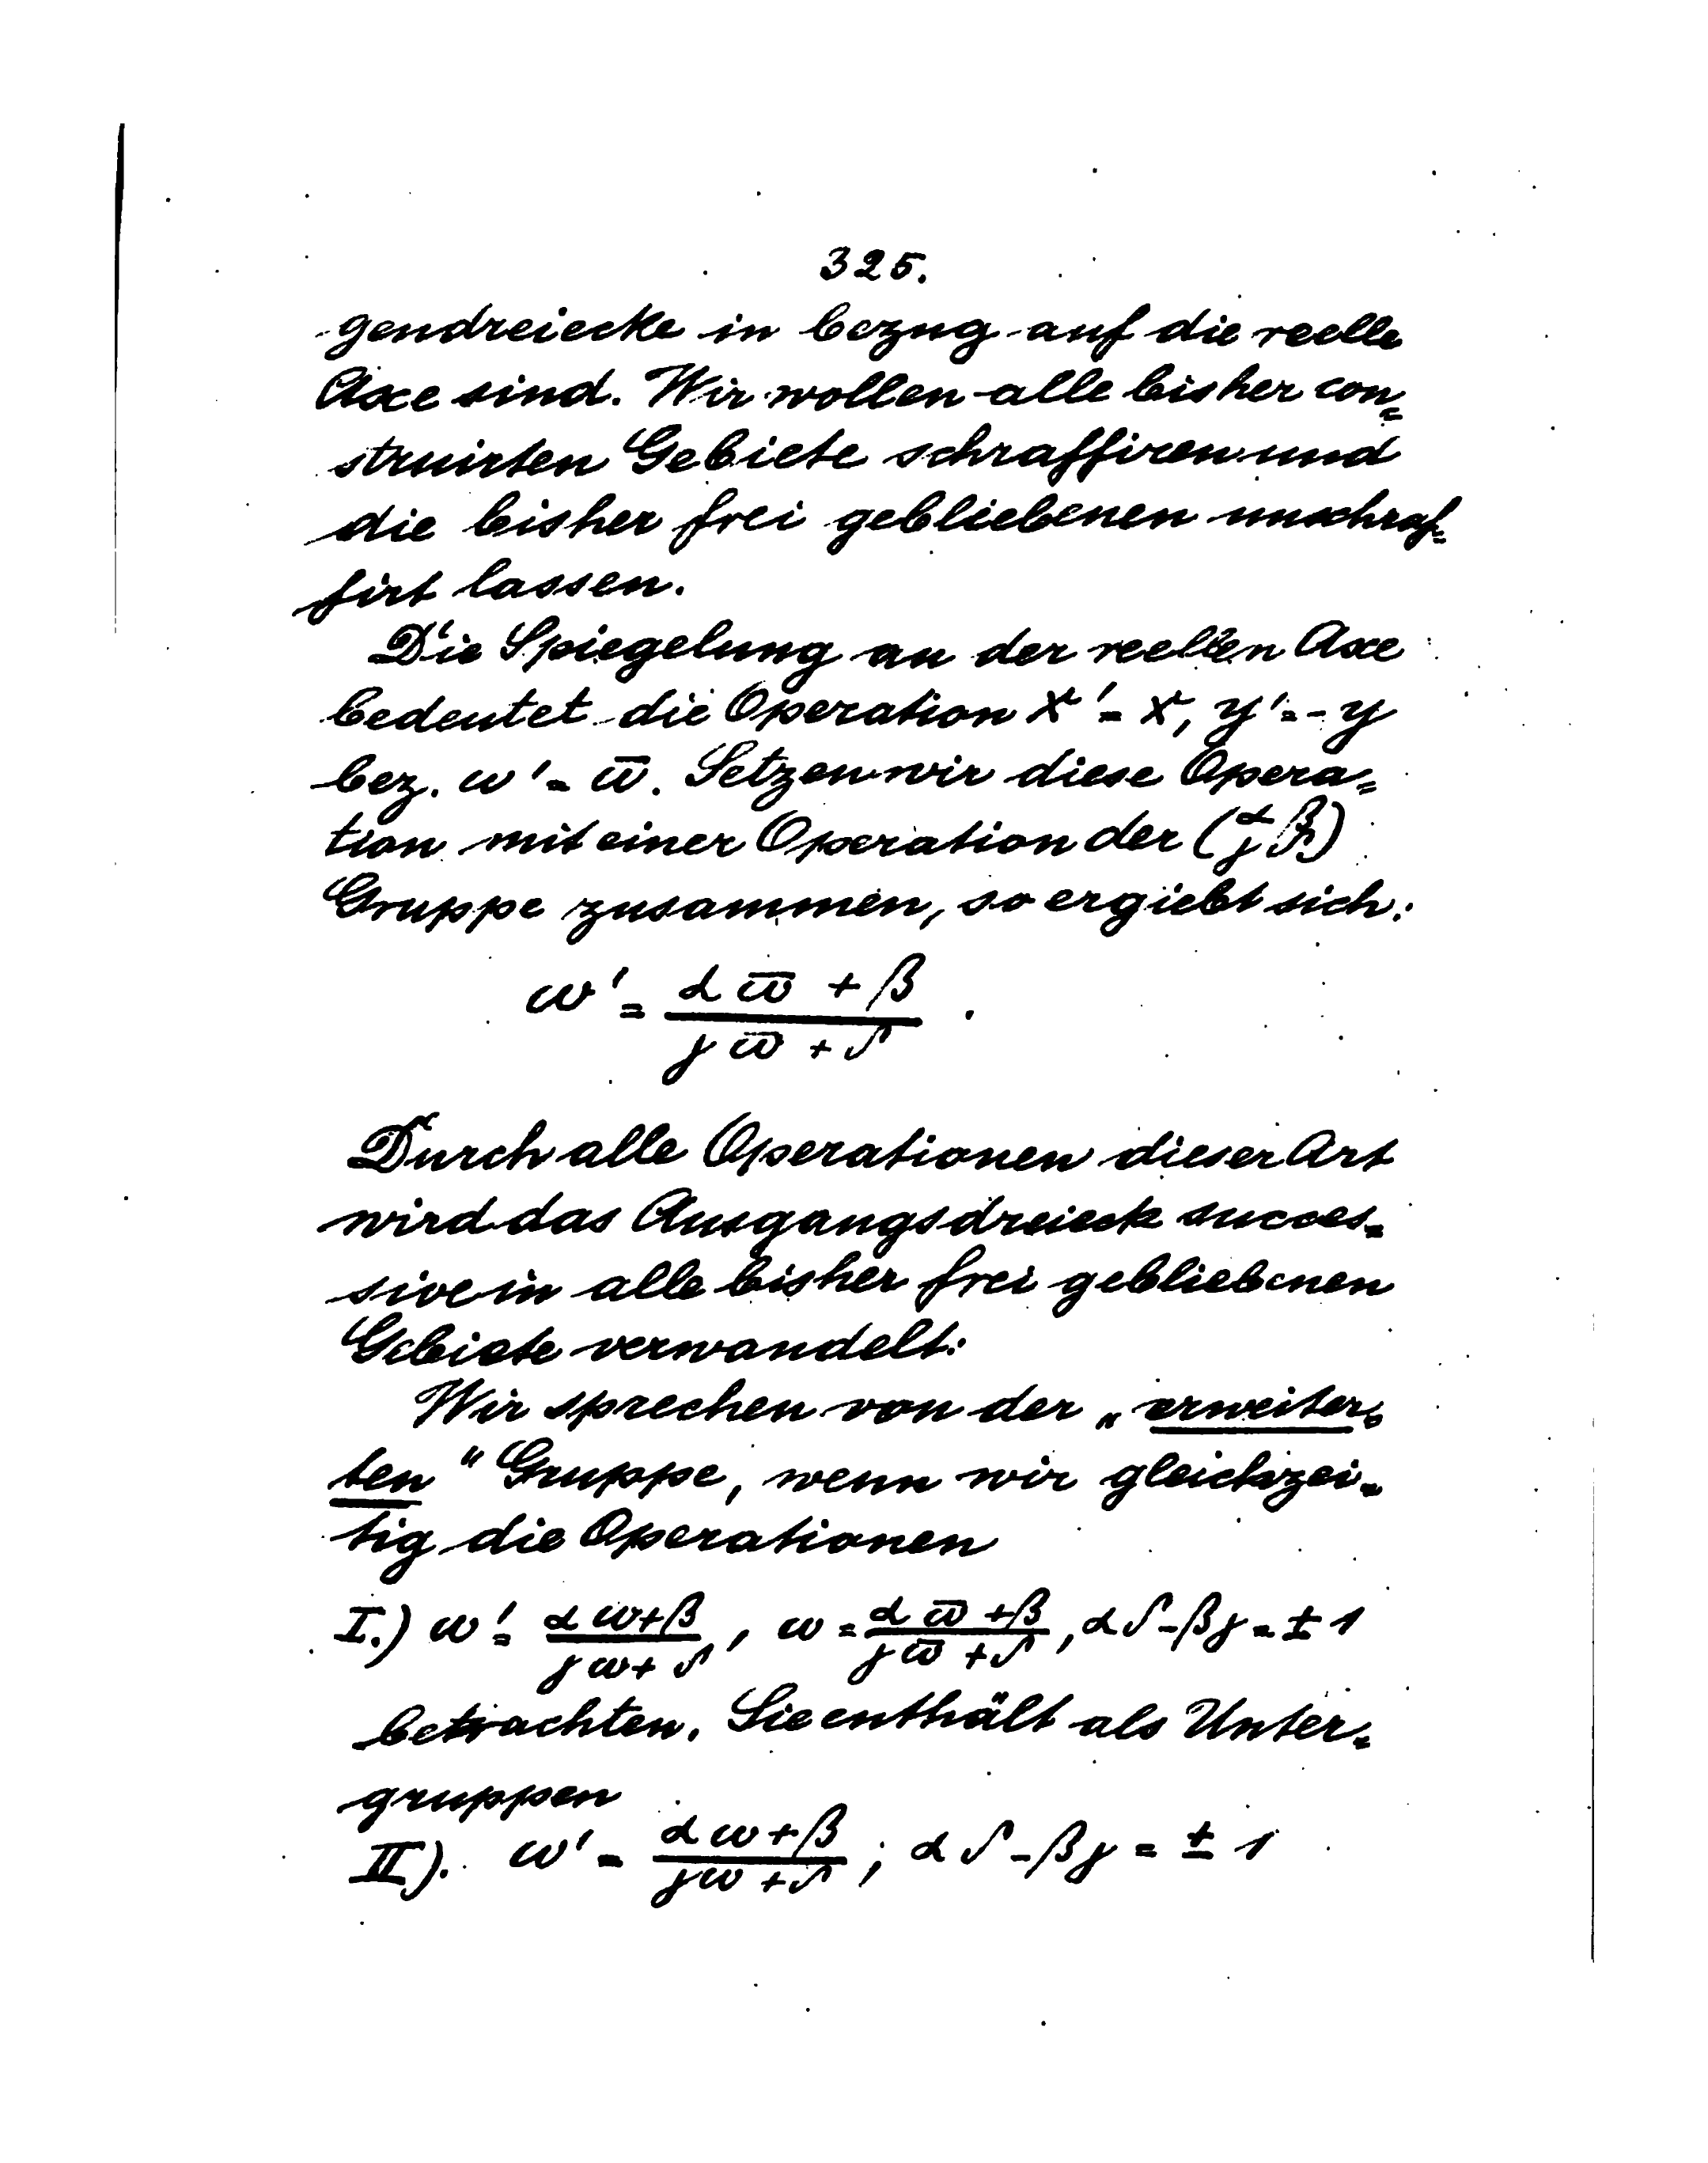 325.
gendreiecke in bezug auf die reelle
Axe sind. Wir wollen alle bisher con=
struirten Gebiete schraffiren und
die bisher frei gebliebenen unschraf=
firt lassen.
Die Spiegelung an der reellen Axe
bedeutet die Operation x' = x, y' = -y
bez. ω' = ω̅. Setzen wir diese Opera=
tion mit einer Operation der (α β / γ δ)
Gruppe zusammen, so ergiebt sich:
ω' = (α ω̅ + β) / (γ ω̅ + δ).
Durch alle Operationen dieser Art
wird das Ausgangsdreieck succes=
sive in alle bisher frei gebliebenen
Gebiete verwandelt:
Wir sprechen von der „erweiter=
ten" Gruppe, wenn wir gleichzei=
tig die Operationen
I.) ω' = (α ω + β) / (γ ω + δ), ω = (α ω̅ + β) / (γ ω̅ + δ), α δ - β γ = ± 1
betrachten. Sie enthält als Unter=
gruppen
II). ω' = (α ω + β) / (γ ω + δ); α δ - β γ = ± 1